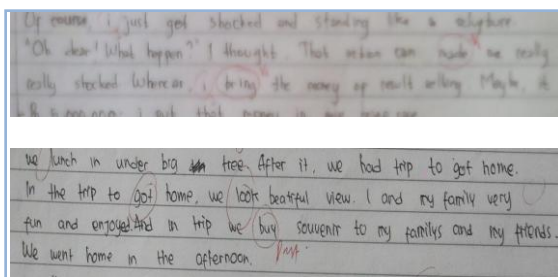 Of course, i just got shocked and standing like a sculpture.
"Oh dear! What happen?" I thought. That action can made me really
really shocked Whereas, i bring the money of result selling. Maybe, it
i put that money in my
we lunch in under big tree. After it, we had trip to got home.
In the trip to got home, we look beatiful view. I and my family very
fun and enjoyed. And in trip we buy souvenir to my familys and my friends.
We went home in the afternoon. Past.